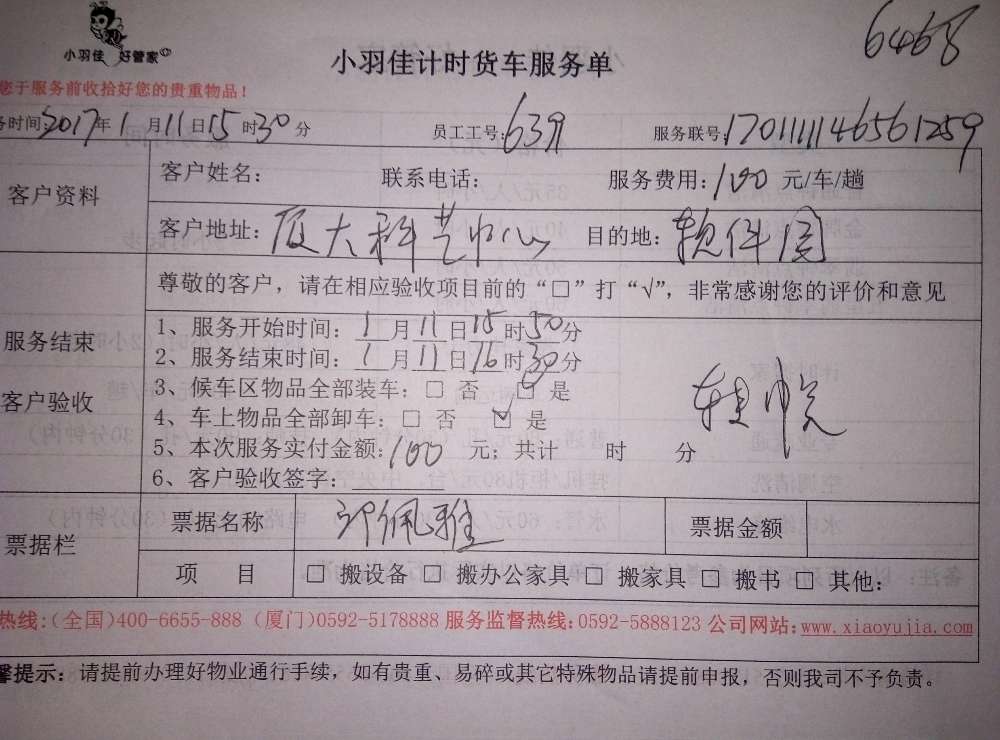 6468
小羽佳 好管家
小羽佳计时货车服务单
您于服务前收拾好您的贵重物品！
务时间:2017年1月11日15时30分 员工工号: 服务联号:170111146561259
客户资料
客户姓名： 联系电话： 服务费用：100元/车/趟
客户地址：厦大科艺中心 目的地：软件园
尊敬的客户，请在相应验收项目前的“□”打“√”，非常感谢您的评价和意见
服务结束
客户验收
1、服务开始时间：1月11日15时50分
2、服务结束时间：1月11日16时30分
3、候车区物品全部装车：□ 否 □ 是
4、车上物品全部卸车：□ 否 ☑ 是
5、本次服务实付金额:100元；共计 时 分
6、客户验收签字：
票据栏
票据名称 佩雅 票据金额
项 目 □ 搬设备 □ 搬办公家具 □ 搬家具 □ 搬书 □ 其他：
热线:(全国)400-6655-888 (厦门)0592-5178888 服务监督热线:0592-5888123 公司网站:www.xiaoyujia.com
馨提示：请提前办理好物业通行手续，如有贵重、易碎或其它特殊物品请提前申报，否则我司不予负责。